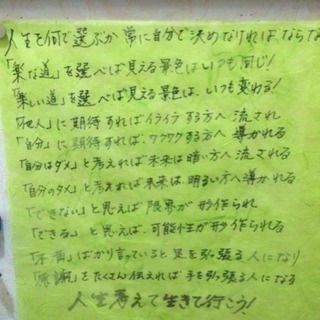 人生を何で選ぶか常に自分で決めなければならな
「楽な道」を選べば見える景色はいつも同じ!
「楽しい道」を選べば見える景色は、いつも変わる!
「他人」に期待すればイライラする方へ流され
「自分」に期待すれば、ワクワクする方へ導かれる
「自分はダメ」と考えれば未来は暗い方へ流される
「自分のダメ」と考えれば未来は、明るい方へ導かれる
「できない」と思えば限界が形作られ
「できる」と思えば、可能性が形作られる
「不満」ばかり言っていると足を引っ張る人になり
「感謝」をたくさん伝えれば手を引っ張る人になる
人生考えて生きて行こう!